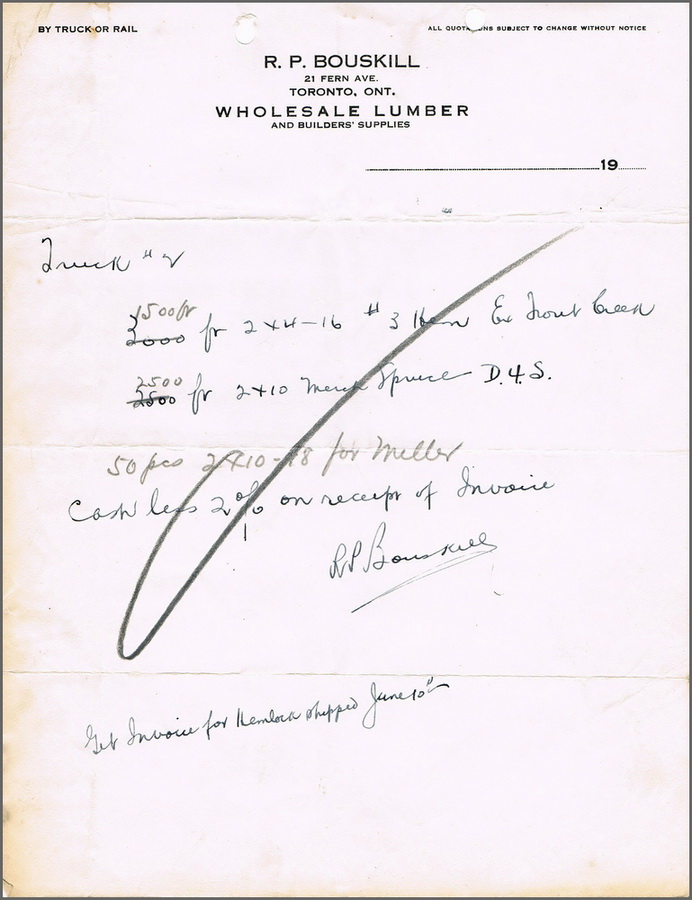 BY TRUCK OR RAIL
ALL QUOTATIONS SUBJECT TO CHANGE WITHOUT NOTICE
R. P. BOUSKILL
21 FERN AVE.
TORONTO, ONT.
WHOLESALE LUMBER
AND BUILDERS' SUPPLIES
19
Truck # 2
1500 fr
2000 fr 2x4-16 #3 Hem Ex Trout Creek
2500
2500 fr 2x10 Merch Spruce D.4.S.
50 pcs 2x10-18 for Miller
Cash less 2 % on receipt of Invoice
RP Bouskill
Get Invoice for Hemlock shipped June 10th